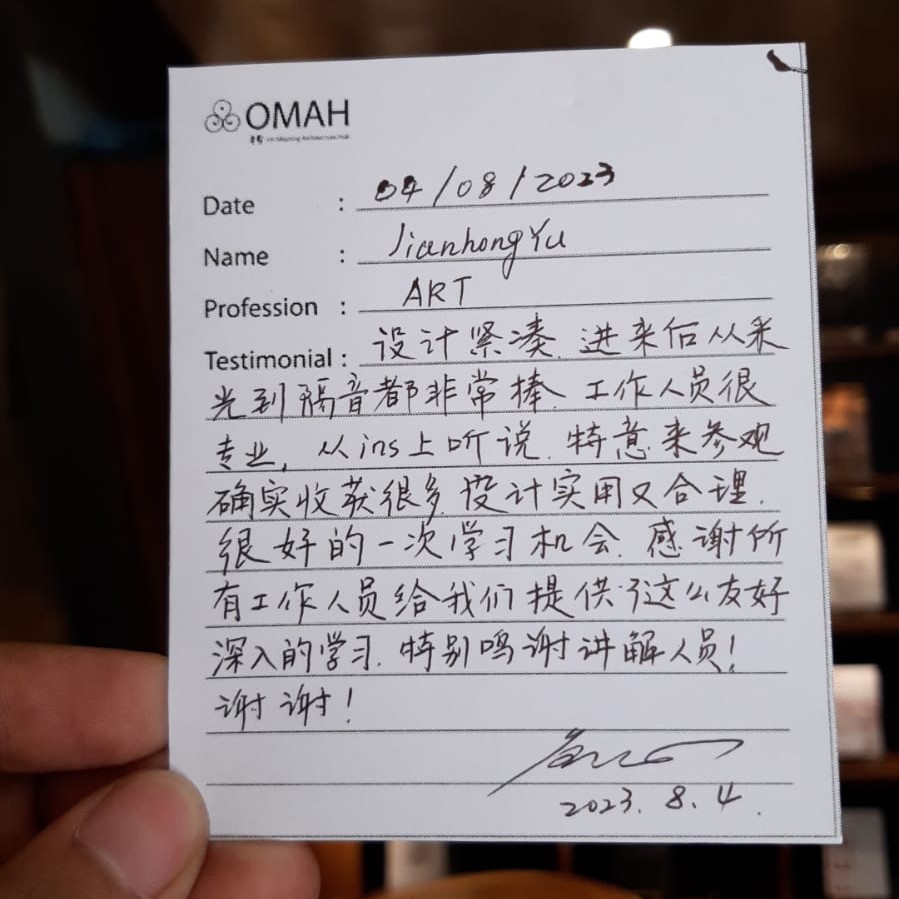 OMAH
Date : 04/08/2023
Name : Jianhong Yu
Profession : ART
Testimonial : 设计紧凑. 进来后从采
光到隔音都非常棒. 工作人员很
专业, 从ins上听说. 特意来参观
确实收获很多. 设计实用又合理.
很好的一次学习机会. 感谢所
有工作人员给我们提供了这么友好
深入的学习. 特别鸣谢讲解人员!
谢谢!
2023.8.4.